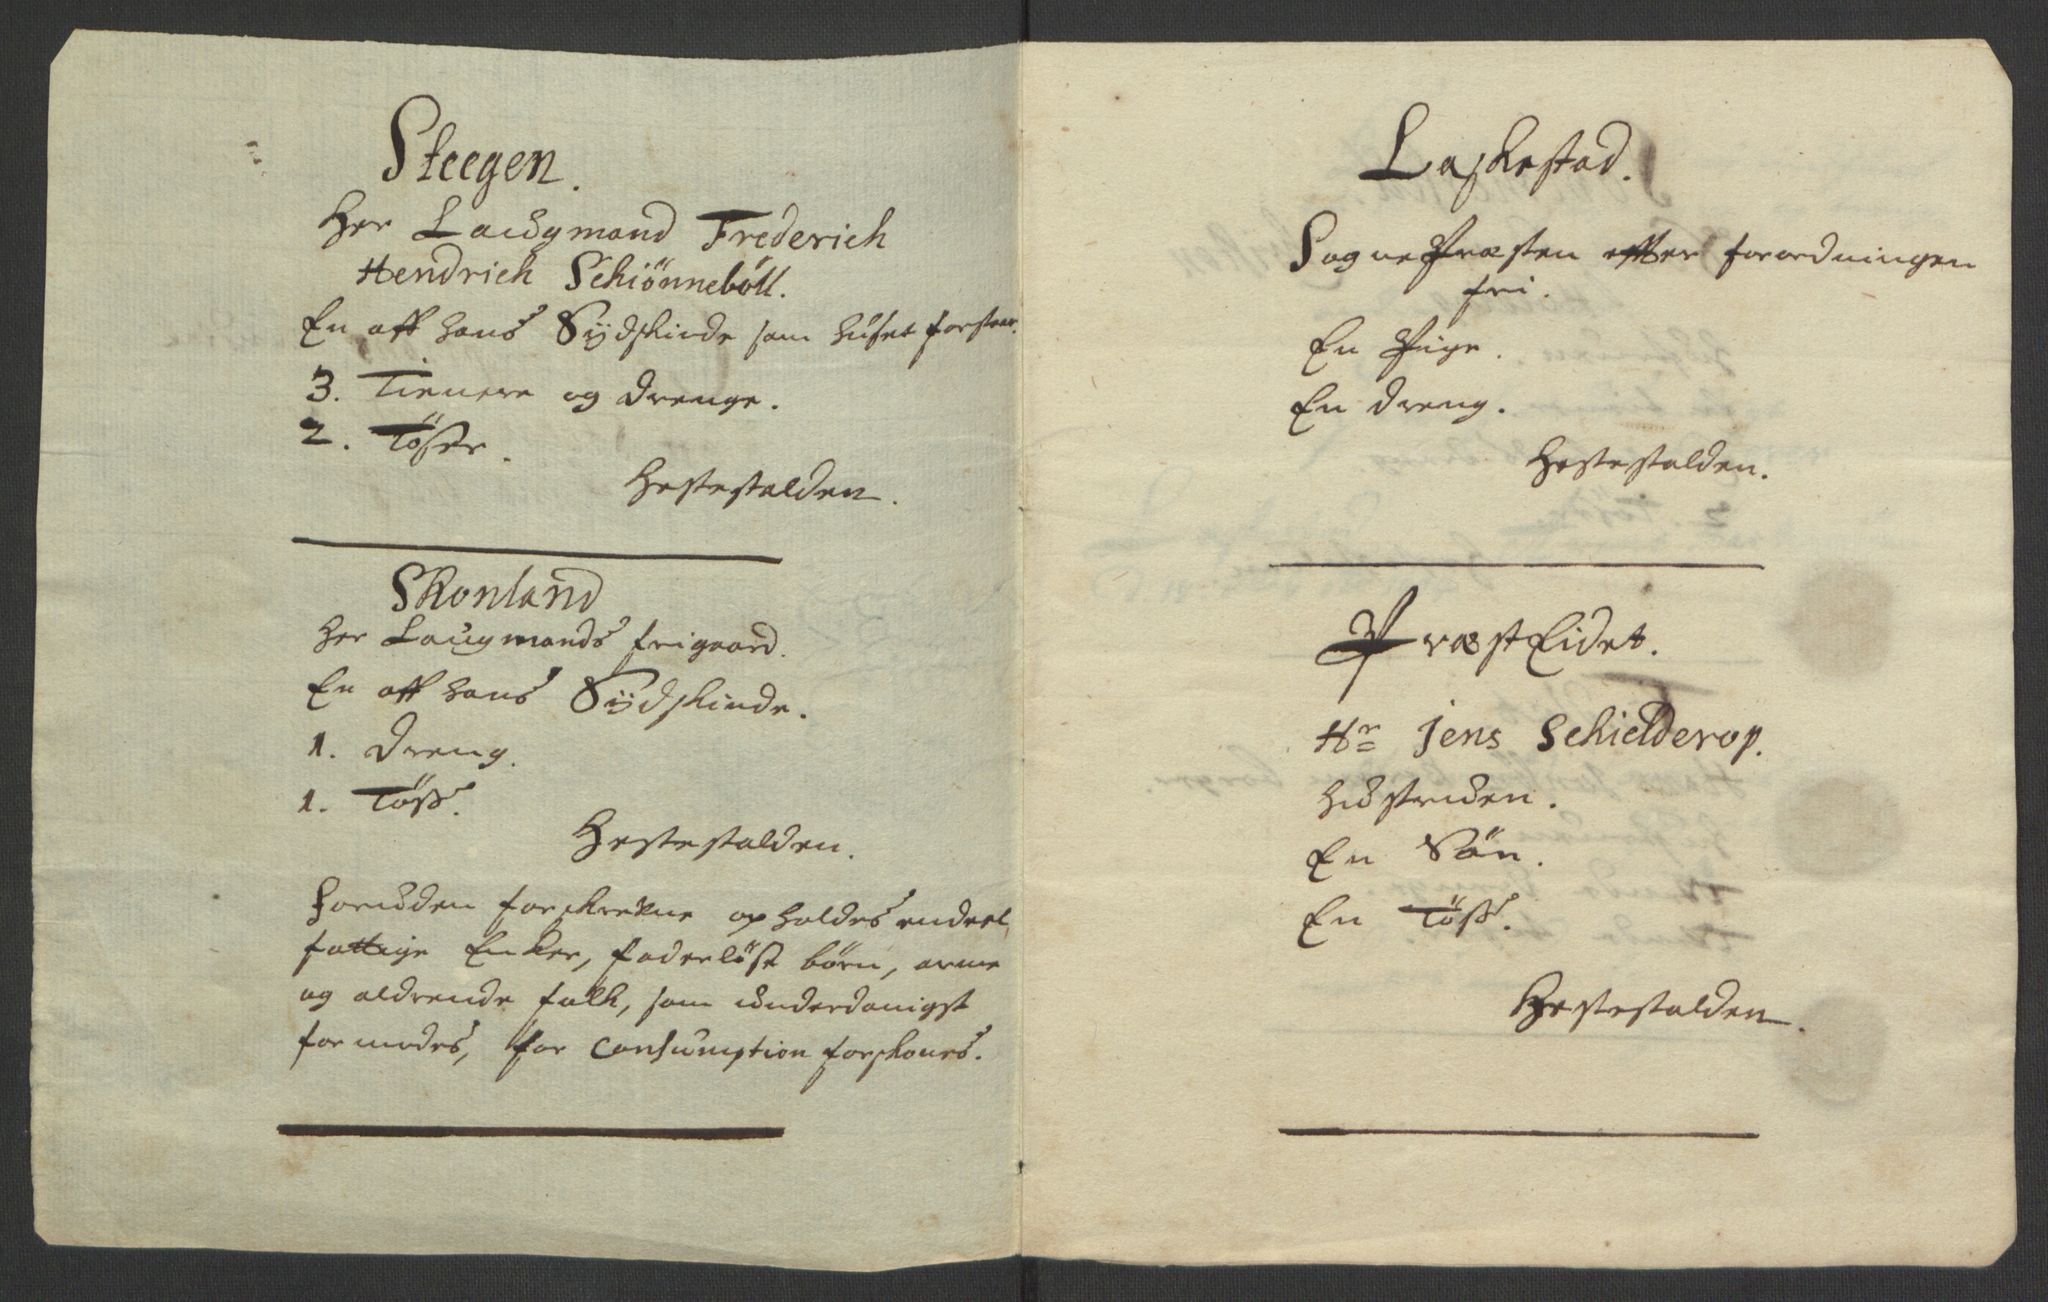 Steegen.
Her Laugmand Frederich
Hendrich Schiönneböll.
En aff hans Sÿdskinde som huset forstaar.
3. Tienere og Drenge.
2. Töser.
Hestestalden.
Skonland
Her Laugmands frigaard.
En aff hans Sÿdskinde.
1. Dreng.
1. Töss.
Hestestalden.
Foruden forskrefne opholdes endeel
fattige Enker, faderlöse börn, arme
og aldrende folk, som underdanigst
formodes, for Consumption forskones.
Laskestad.
SognePræsten effter forordningen
fri.
En Pige.
En Dreng.
Hestestalden.
PræstEidet.
Hr Jens Schielderop.
Hustruen.
En Sön.
En Töss.
Hestestalden.